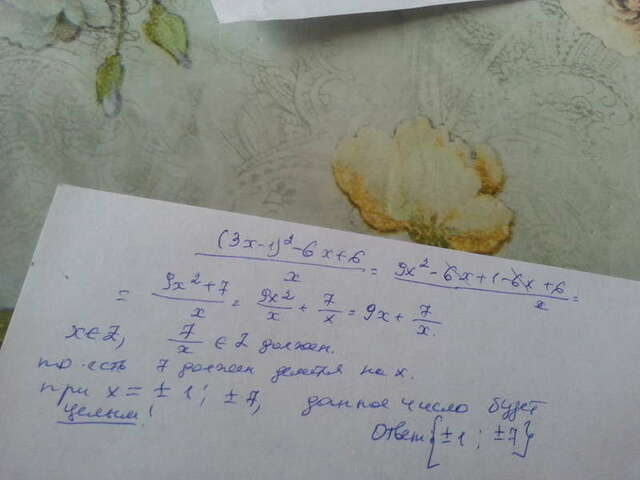 (3x-1)²-6x+6/x = 9x²-6x+1-6x+6/x =
= 9x²+7/x = 9x²/x + 7/x = 9x + 7/x.
x∈Z, 7/x ∈ Z должен.
то есть 7 должен делится на x.
при x = ±1; ±7, данное число будет
целым!
Ответ {±1; ±7}